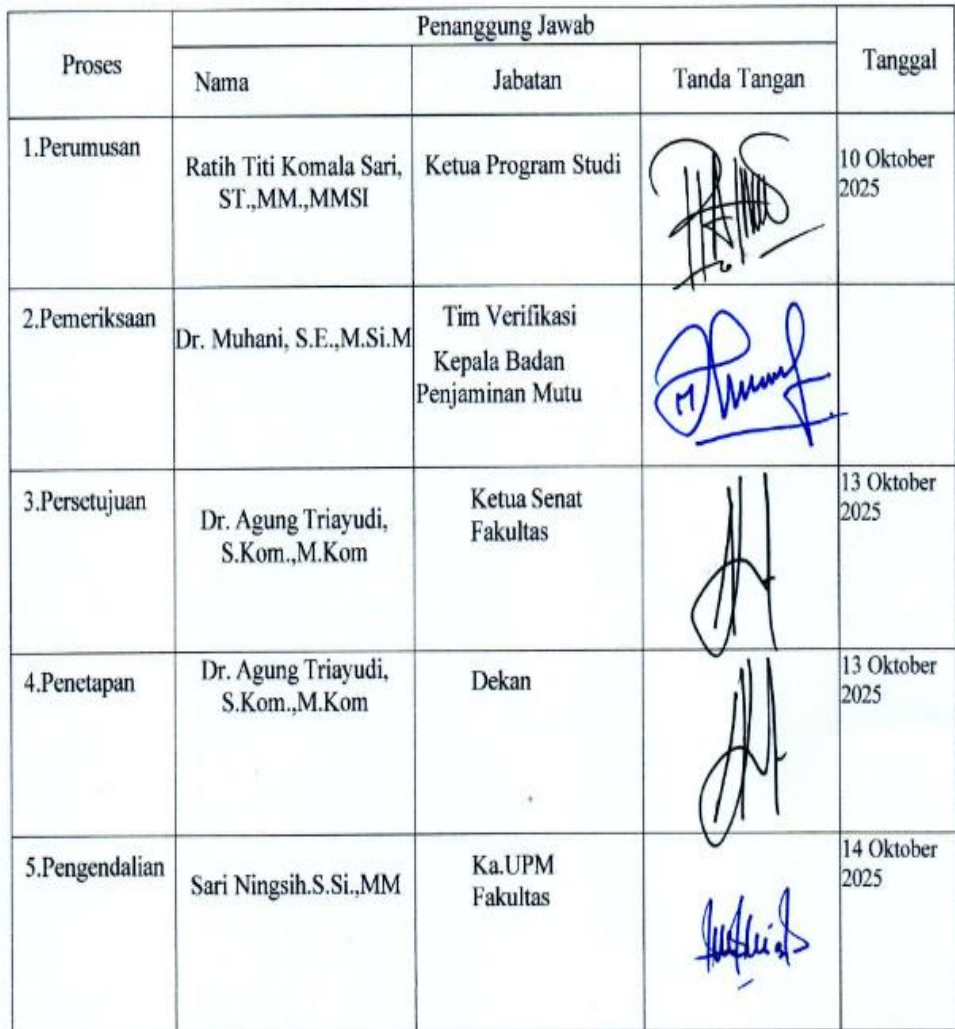 Proses
Penanggung Jawab
Tanggal
Nama
Jabatan
Tanda Tangan
1.Perumusan
Ratih Titi Komala Sari,
ST.,MM.,MMSI
Ketua Program Studi
10 Oktober
2025
2.Pemeriksaan
Dr. Muhani, S.E.,M.Si.M
Tim Verifikasi
Kepala Badan
Penjaminan Mutu
3.Persetujuan
Dr. Agung Triayudi,
S.Kom.,M.Kom
Ketua Senat
Fakultas
13 Oktober
2025
4.Penetapan
Dr. Agung Triayudi,
S.Kom.,M.Kom
Dekan
13 Oktober
2025
5.Pengendalian
Sari Ningsih.S.Si.,MM
Ka.UPM
Fakultas
14 Oktober
2025